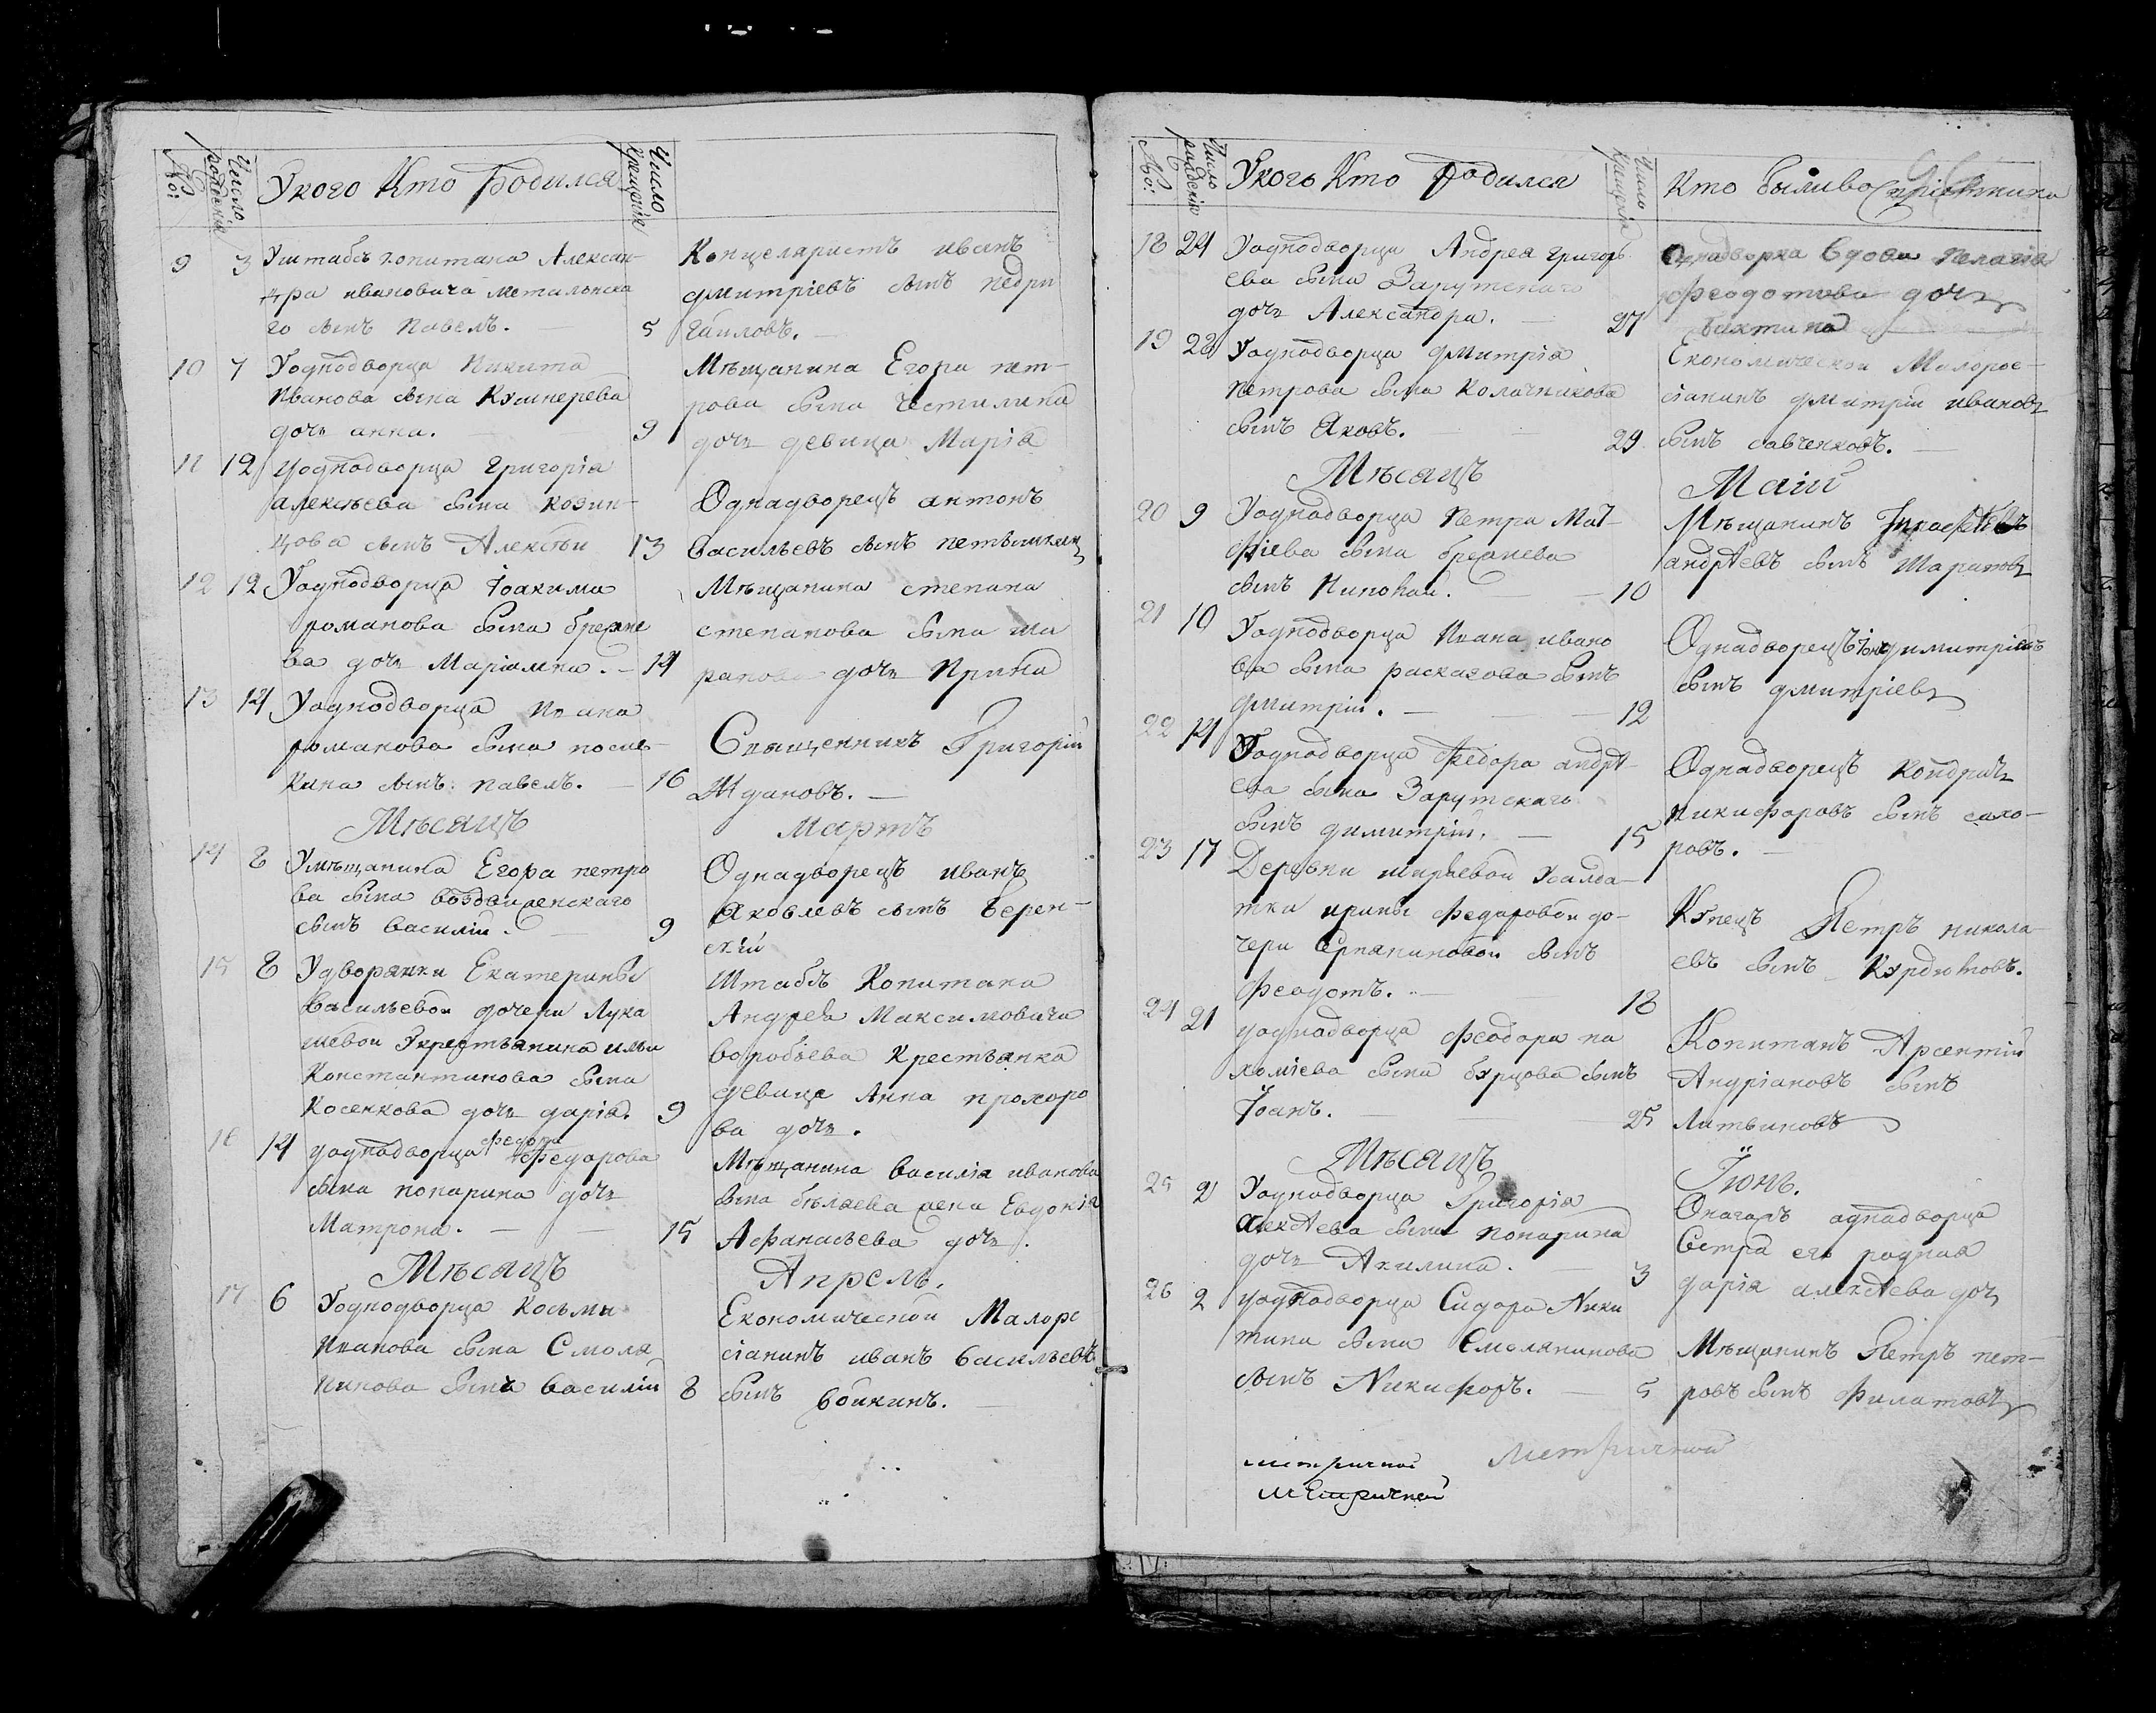 №: Число рождения Укого Кто Родился Число крещения
9 3 Уштабсъ копитана Алексан-
дра ивановича Метальнска
го сынъ павелъ. 5
Концеляристъ иванъ
дмитріевъ сынъ
10 7 Уоднодворца Никита
Иванова сына
дочь анна. 9
Мѣщанина Егора пет-
рова сына
дочь девица Марія
11 12 уоднодворца григорія
алексѣева сына козин-
цова сынъ Алексѣи 13
Однадворецъ антонъ
васильевъ сынъ
12 12 Уоднодворца Іоакима
романова сына брежне
ва дочь Маріамна. 14
Мѣщанина степана
степанова сына ша
рапова дочь Ирина
13 14 Уоднодворца Ивана
романова сына
кина сынъ: павелъ. 16
Священникъ Григорій
Ждановъ.
Мѣсяцъ Мартъ
14 8 Умѣщанина Егора петро
ва сына воздвиженскаго
сынъ василій. 9
Однадворецъ иванъ
Яковлевъ сынъ Верен-
скій
15 8 Удворянки Екатерины
Васильевои дочери Лука
шевои Укрестьянина ильи
Константинова сына
Косенкова дочь дарія. 9
Штабсъ Копитана
Андрея Максимовича
воробьева Крестьянка
девица Анна прохоро
ва дочь.
16 14 уоднодворца федота Федорова
сына попарина дочь
Матрона. 15
Мѣщанина василія иванова
сына бѣляева жена Евдокія
Афанасьева дочь.
Мѣсяцъ Апрель.
17 6 Уоднодворца Косьмы
Иванова сына Смоля
нинова сынъ василій 8
Економическои Малорс
сіанинъ иванъ васильевъ
сынъ бойкинъ.
№: Число рождения Укого Кто Родился Число крещения Кто были восприемники
18 24 Уоднодворца Андрея григорь
ева сына Зарутскаго
дочь Александра. 27
Однадворка вдова пелагія
Феодотова дочь
бахтина
19 28 Уоднодворца дмитрія
петрова сына Колачникова
сынъ Яковъ. 29
Економическои Малорос-
сіанинъ дмитрій ивановъ
сынъ савченковъ.
Мѣсяцъ Маій
20 9 Уоднодворца Петра Мат-
фіева сына брежнева
сынъ Николай. 10
Мѣщанинъ
андрѣевъ сынъ Шараповъ
21 10 Уоднодворца Ивана ивано
ва сына расказова сынъ
дмитрій. 12
Однадворецъ димитріевъ
сынъ дмитріевъ
22 14 Уоднодворца Федора андрѣ-
ева сына Зарутскаго
сынъ димитрій. 15
Однадворецъ Кондратъ
никифоровъ сынъ сахо-
ровъ.
23 17 Деревни ширяевой Усалда-
тки ирины федоровои до-
чери сынъ
Феодотъ. 18
Купецъ Петръ никола-
евъ сынъ Курдюмовъ.
24 21 уоднодворца феодора па
хоміева сына бурцова сынъ
Іоанъ. 25
Копитанъ Арсентій
Андріановъ сынъ
Литвиновъ
Мѣсяцъ Іюнь.
25 2 Уоднодворца Григорія
Алексѣева сына попарина
дочь Акилина. 3
Онагожъ однадворца
Сестра его родная
дарія алексѣева дочь
26 2 уоднодворца Сидора Ники
тина сына Смолянинова
сынъ Никифоръ. 5
Мѣщанинъ Петръ пет-
ровъ сынъ филатовъ
метричной Метричной
метричной